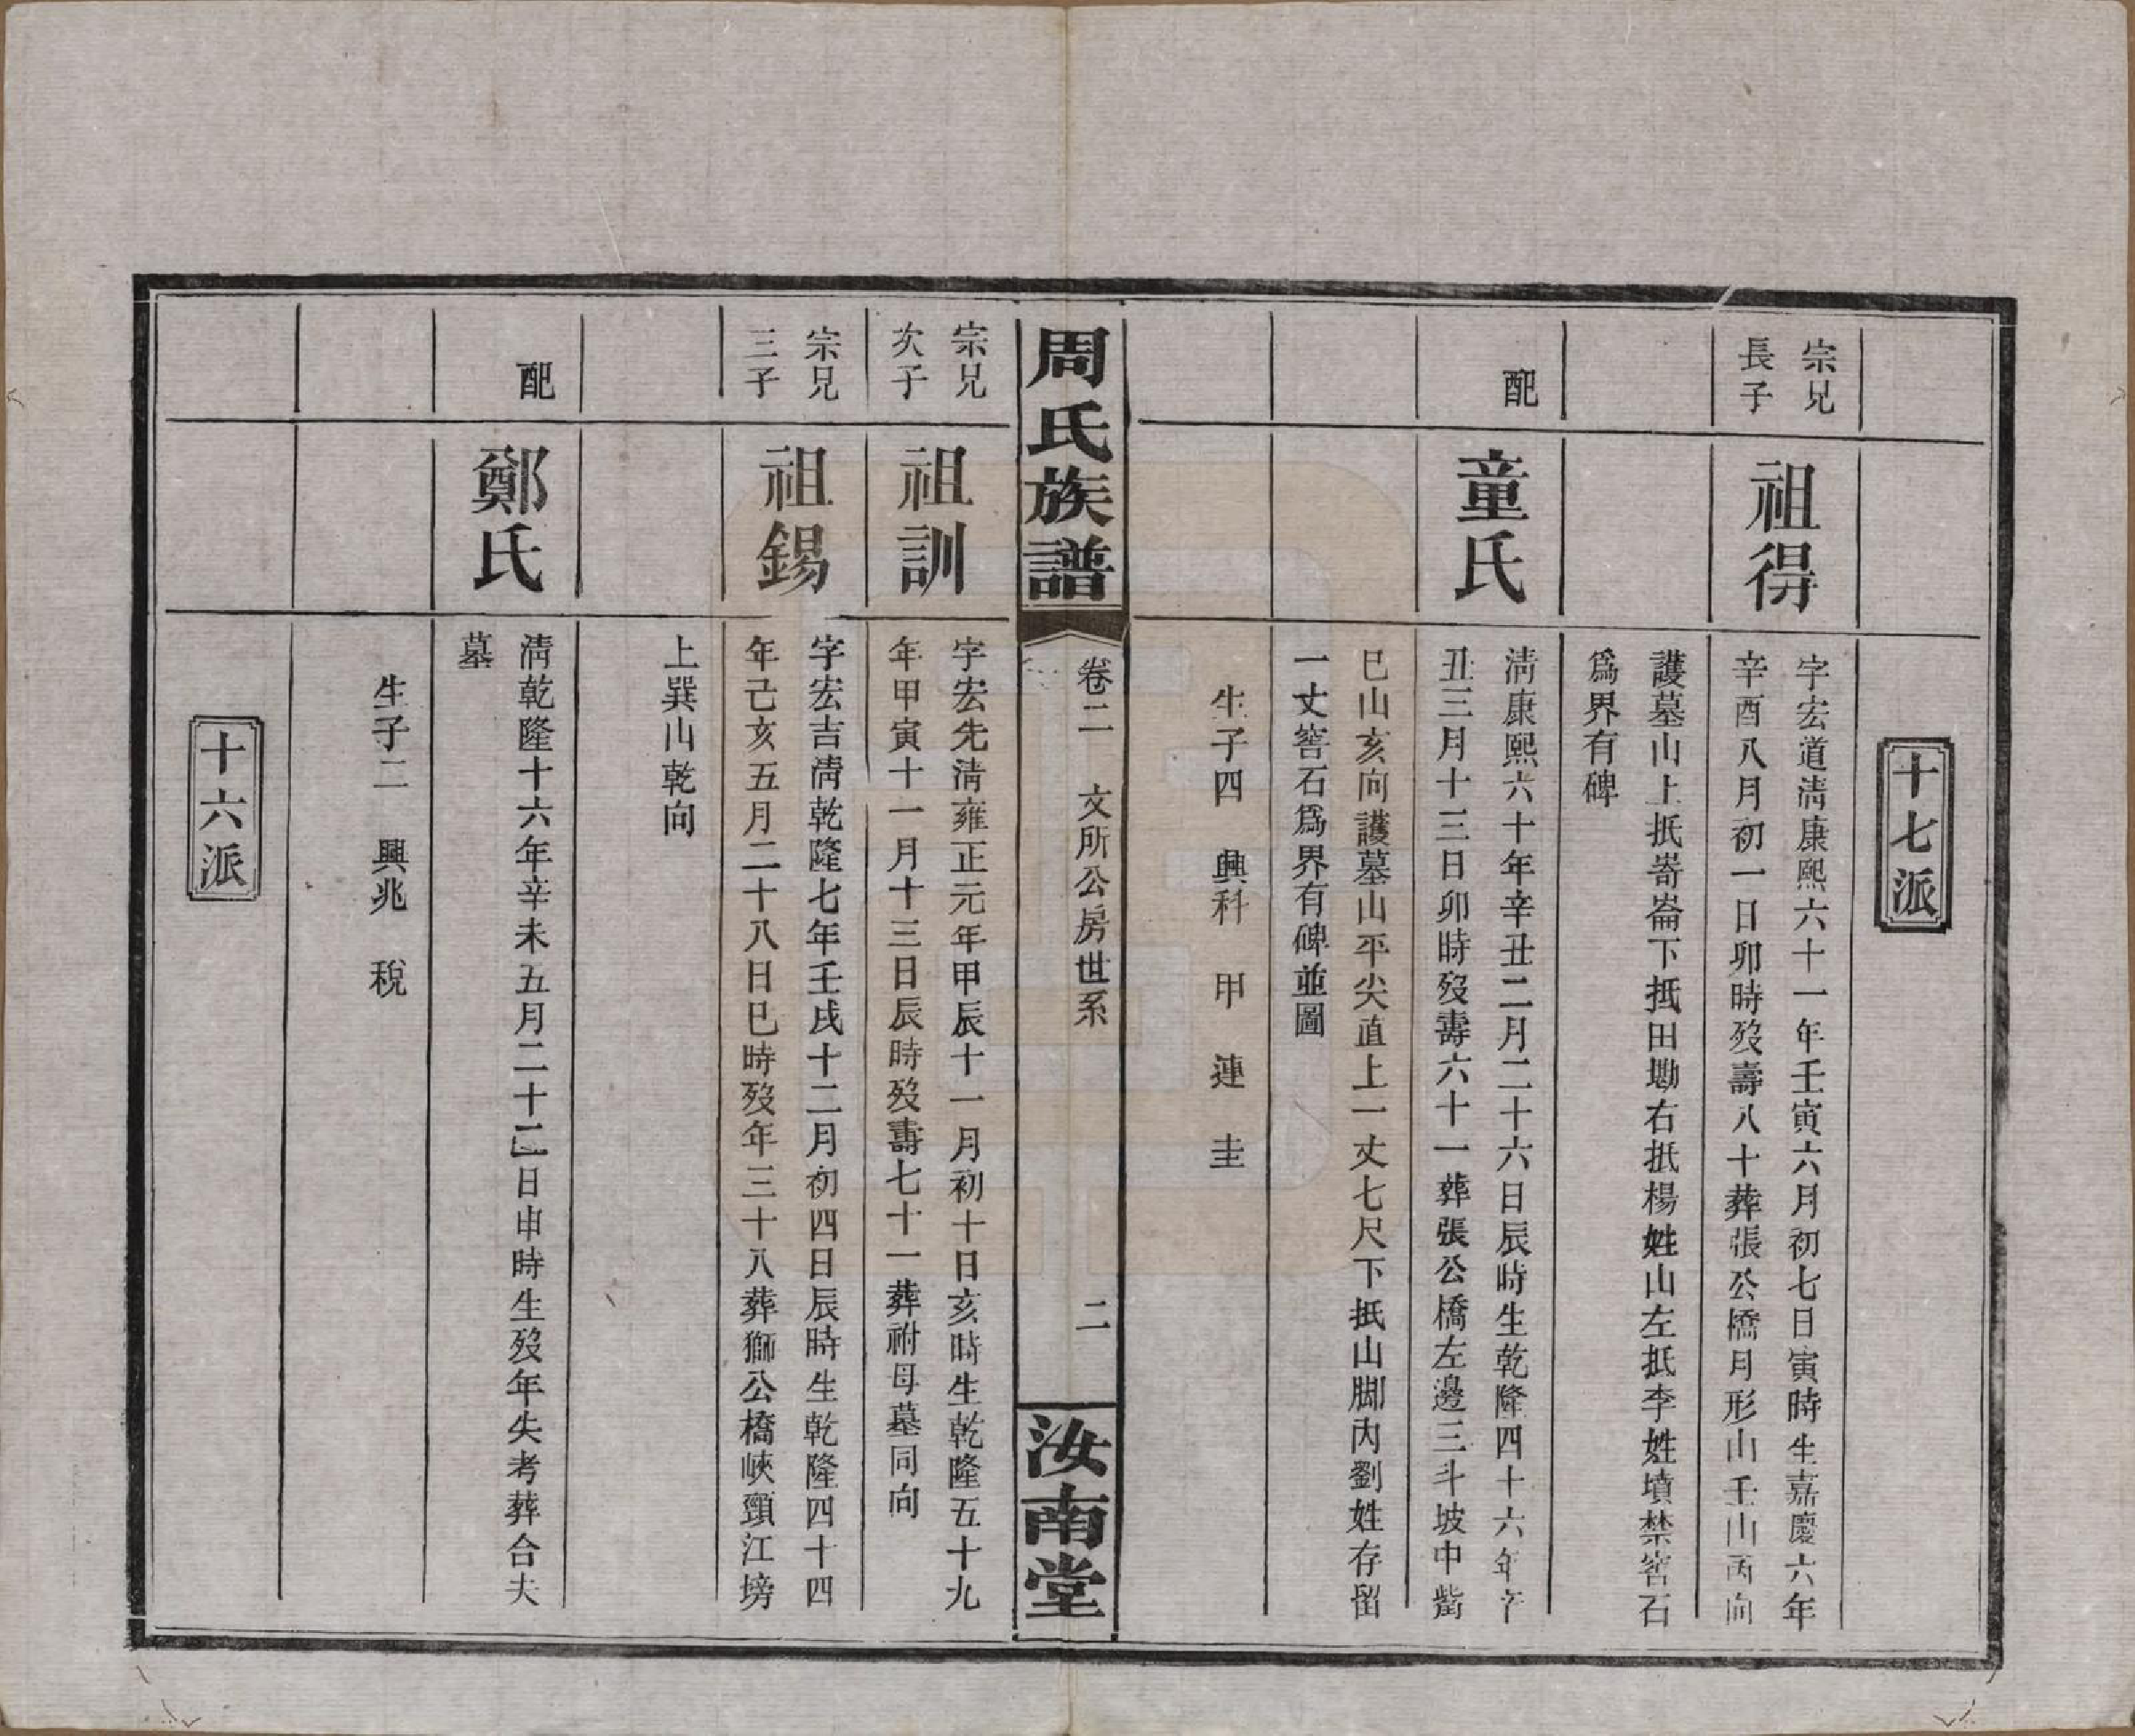 十七派
宗兄長子
祖得
字宏道淸康熙六十一年壬寅六月初七日寅時生嘉慶六年
辛酉八月初一日卯時歿壽八十葬張公橋月形山壬山丙向
護墓山上抵嵜崙下抵田墈右抵楊姓山左抵李姓墳禁窖石
爲界有碑
配
童氏
淸康熙六十年辛丑二月二十六日辰時生乾隆四十六年辛
丑三月十三日卯時歿壽六十一葬張公橋左邊三斗坡中嘴
巳山亥向護墓山平尖直上一丈七尺下抵山脚內劉姓存留
一丈窖石爲界有碑並圖
生子四　興科　甲　連　圭
周氏族譜
卷二　文所公房世系　二
汝南堂
宗兄次子
祖訓
字宏先淸雍正元年甲辰十一月初十日亥時生乾隆五十九
年甲寅十一月十三日辰時歿壽七十一葬祔母墓同向
宗兄三子
祖錫
字宏吉淸乾隆七年壬戌十二月初四日辰時生乾隆四十四
年己亥五月二十八日巳時歿年三十八葬獅公橋峽頸江塝
上巽山乾向
配
鄭氏
淸乾隆十六年辛未五月二十二日申時生歿年失考葬合夫
墓
生子二　興兆　稅
十六派